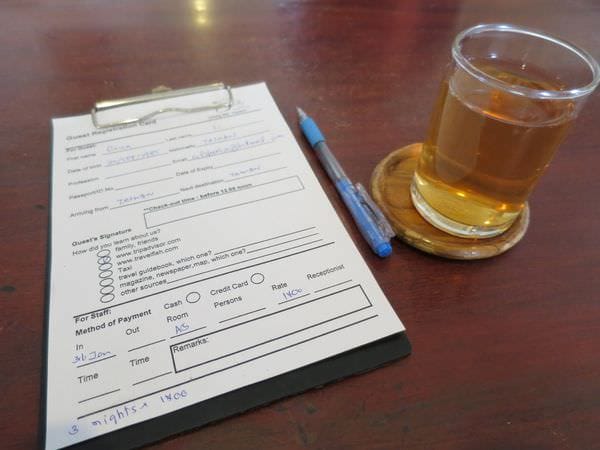 Guest Registration Card
For Guest:
First name Last name
Date of birth Nationality TAIWAN
Profession Email
Passport/ID No. Date of Expiry
Arriving from TAIWAN Next destination TAIWAN
**Check-out time : before 12.00 noon
Guest's Signature
How did you learn about us?
family, friends
www.tripadvisor.com
www.travelfish.com
Taxi
travel guidebook, which one?
magazine, newspaper,map, which one?
other sources
For Staff:
Method of Payment Cash Credit Card
In Out Room Persons Rate Receptionist
A5
Time Time Remarks:
3 nights x